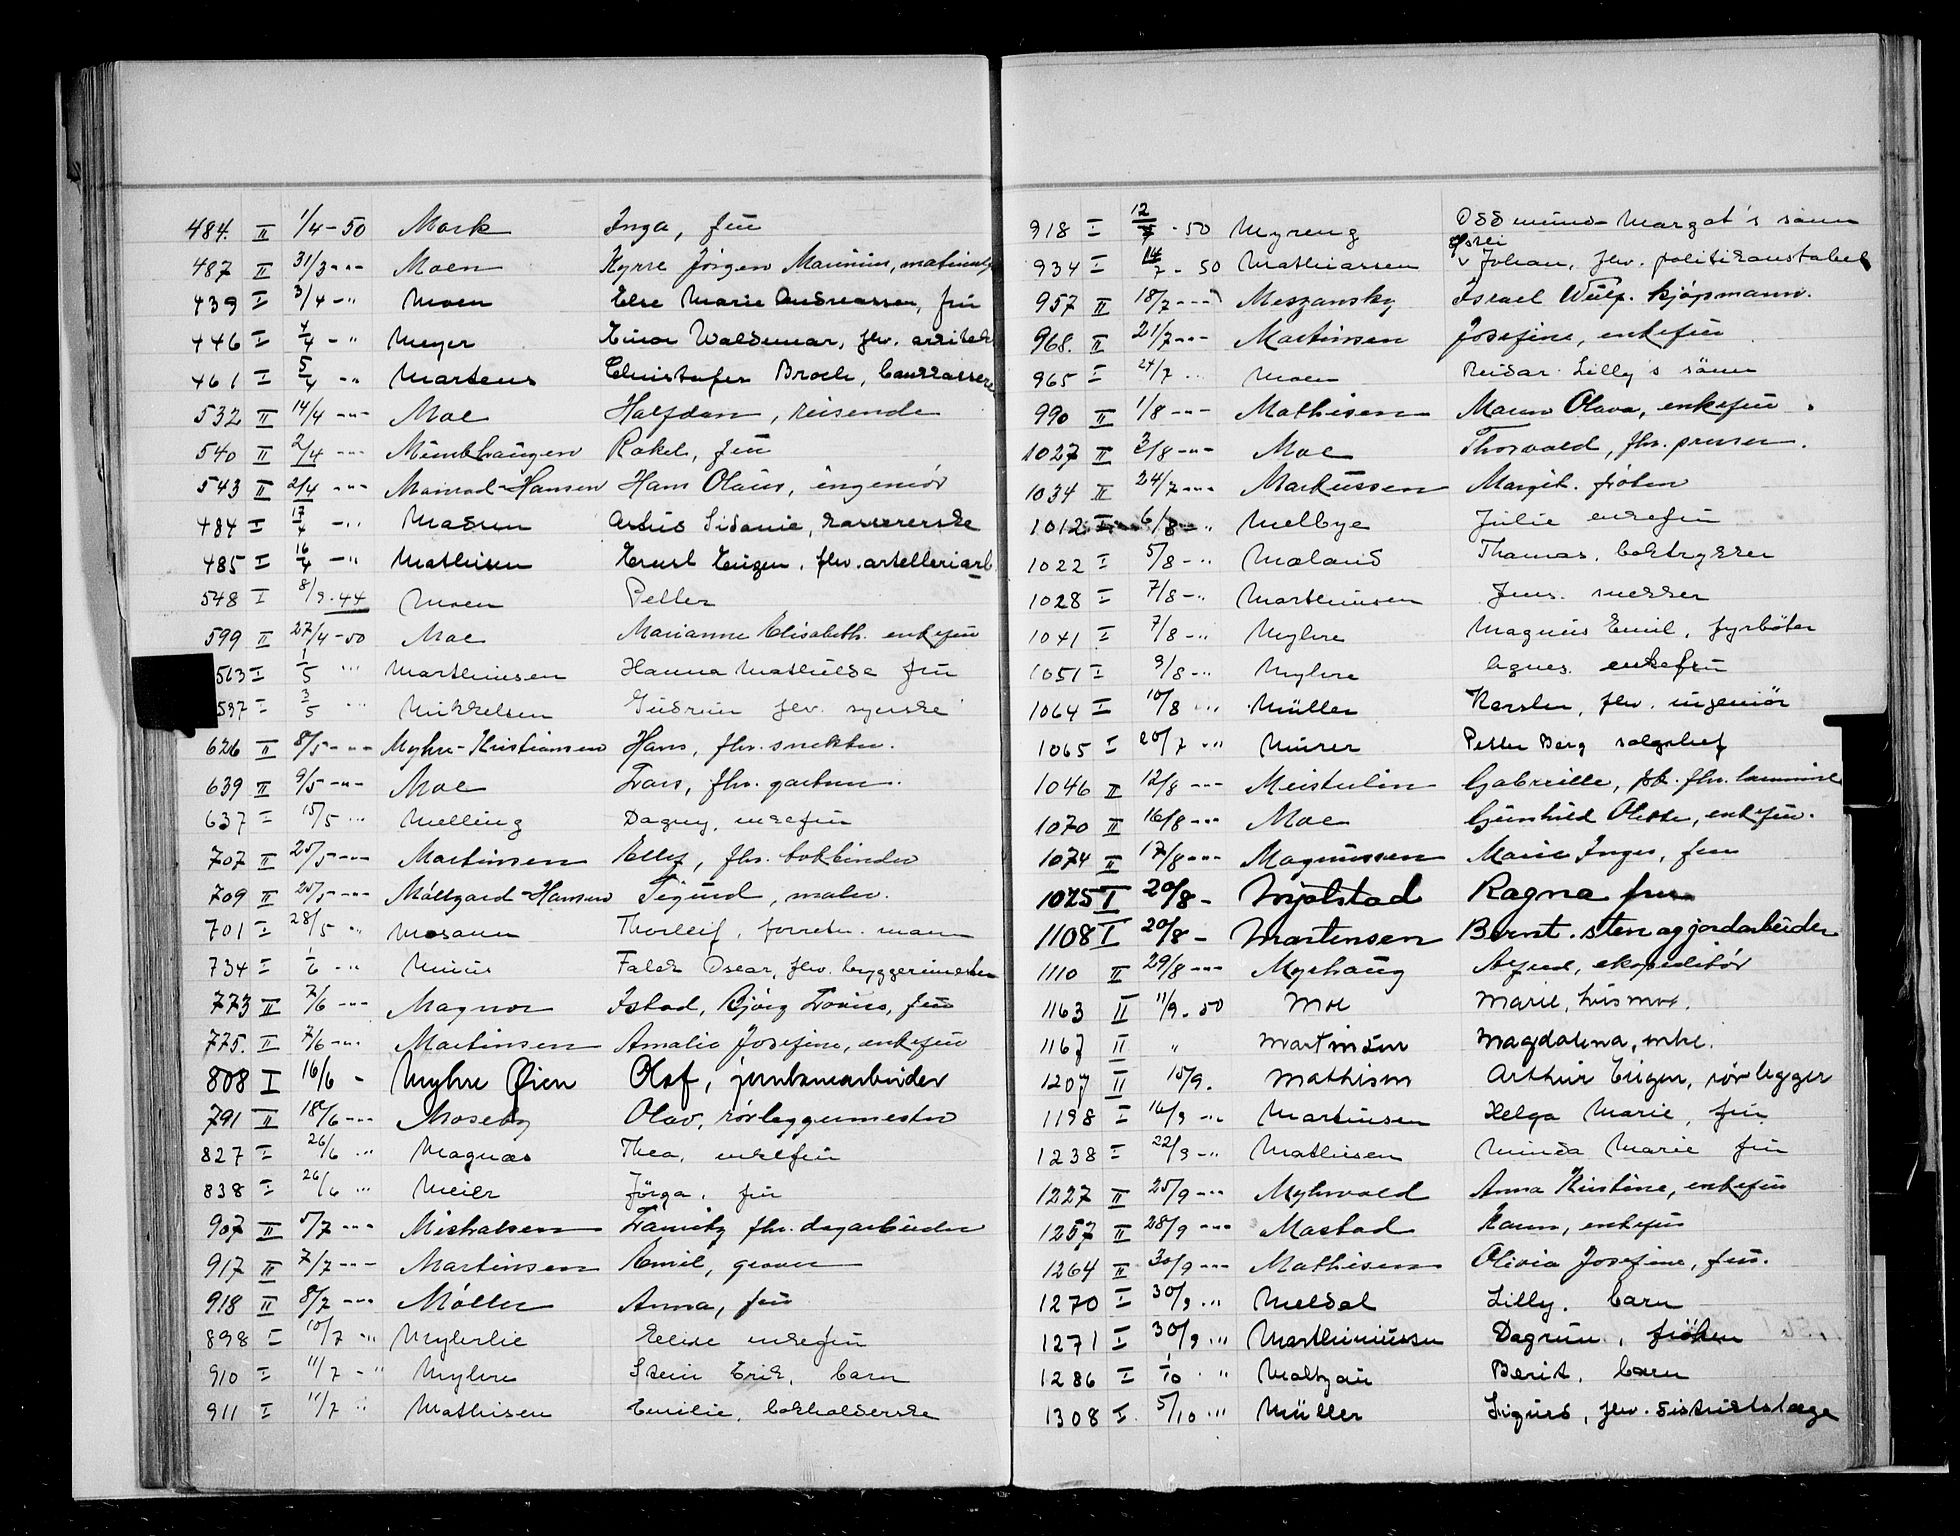 484. II 1/4-50 Mork Inga, fru
487 II 31/3 -"- Moen Kyrre Jörgen Marinius,
439 I 3/4 -" Moen Else Marie Andreassen, fru
446 I 4/4 -" Meyer Einar Waldemar, fhv. arkitek
461 I 5/4 -" Martens Christofer Broch, bankkassere
532 II 14/4 -"- Moe Halfdan, reisende
540 II 2/4 -"- Munkhaugen Rakel, fru
543 II 2/4 -"- Monrad-Hansen Hans Olaus, ingeniør
484 I 17/4 -" Madsen Sidonie, kassererske
485 I 16/4 -" Mathisen Ernst Eugen, fhv. artelleriarb
548 I 8/9.44 Moen Petter
599 II 27/4-50 Moe Marianne Elisabeth. enkefru
563 I 1/5 " Marthinsen Hanna Mathilde fru
597 I 3/5 " Mikkelsen Gudrun fhv. syerske
626 II 8/5 -"- Myhre-Kristiansen Hans, fhv. snekker.
639 II 9/5 -"- Moe Lars, fhv. gartner.
637 I 15/5 " Melling Dagny, enkefru
707 II 25/5 -"- Martinsen Elly, fhv. bokbinder
709 II 25/5 -"- Möllgaard-Hansen Sigurd, maler.
701 I 28/5 " Mosann Thorleif, forretn. mann
734 I 1/6 -" Falck Oscar, fhv. bryggerimester
773 II 7/6 -"- Magnor Istad, Bjørg Lovise, fru
775. II 7/6 -"- Martinsen Amalie Josefine, enkefru
808 I 16/6 - Myhre Øien Olaf, jernbanearbeider
791 II 18/6 -"- Moseby Olav, rørleggermester
827 I 26/6 " Magnas Thea, enkefru
838 I 26/6 " Meier Jörga, fru
907 II 5/7 -"- Mishalsen fhv. dagarbeider
917 II 7/7 -"- Martinsen Emil, graver
918 II 8/7 -"- Møller Anna, fru
898 I 10/7 -" Myhrlie Elise enkefru
910 I 11/7 -" Myhre Stein Erik, barn
911 I 11/7 " Mathisen Emilie, bokholderske
918 I 12/7 - 50 Myreng Oddmund Margot's sønn
934 I 14/7 - 50 Mathiassen Johan, fhv. politikonstabel
957 II 18/7 -"- Meszansky Israel Wulf. kjøpmann.
968. II 21/7 -"- Martinsen Josefine, enkefru
965 I 24/7 " Moen Reidar Lilly's sønn
990 II 1/8 -"- Mathisen Maren Olava, enkefru.
1027 II 3/8 -"- Moe Thorvald, fhv.
1034 II 24/7 -"- Markussen Margit. frøken
1012 I 6/8 -" Melbye Julie enkefru
1022 I 5/8 -" Moland Thomas, boktrykker
1028 I 7/8 -" Marthinsen Jens. snekker
1041 I 7/8 -" Myhre Magnus Emil, fyrbøter
1051 I 9/8 -" Myhre Agnes. enkefru
1064 I 10/8 " Müller Karsten, fhv. ingeniør
1065 I 20/7 " Murer Petter Berg salgschef
1046 II 12/8 -"- Meisterlin Gabrielle, frk. fhv.
1070 II 16/8 -"- Moe Gunhild Olette, enkefru.
1074 II 17/8 -"- Magnussen Marie Inger, fru
1075 I 20/8 - Mjølstad Ragna fru
1108 I 20/8 - Martensen Bernt. sten og jordarbeider
1110 II 29/8 -"- Myrhaug ekspeditør
1163 II 11/9. 50 Moe Marie, husmor.
1167 II " Martinsen Magdalena, enke.
1207 II 15/9. Mathisen Arthur Eugen, rørlegger
1198 I 16/9 -" Martinsen Helga Marie, fru
1238 I 22/9 -" Mathisen Minda Marie fru
1227 II 25/9 -"- Myhrvold Anna Kristine, enkefru
1257 II 28/9 -"- Mostad Karen, enkefru
1264 II 30/9 -"- Mathisen Olivia Josefine, fru.
1270 I 30/9 " Meldal Lilly. barn
1271 I 30/9 " Marthiniussen Dagrun, frøken
1286 I 1/10 " Maltzau Berit, barn
1308 I 5/10 " Müller Sigurd, fhv. distriktslæge